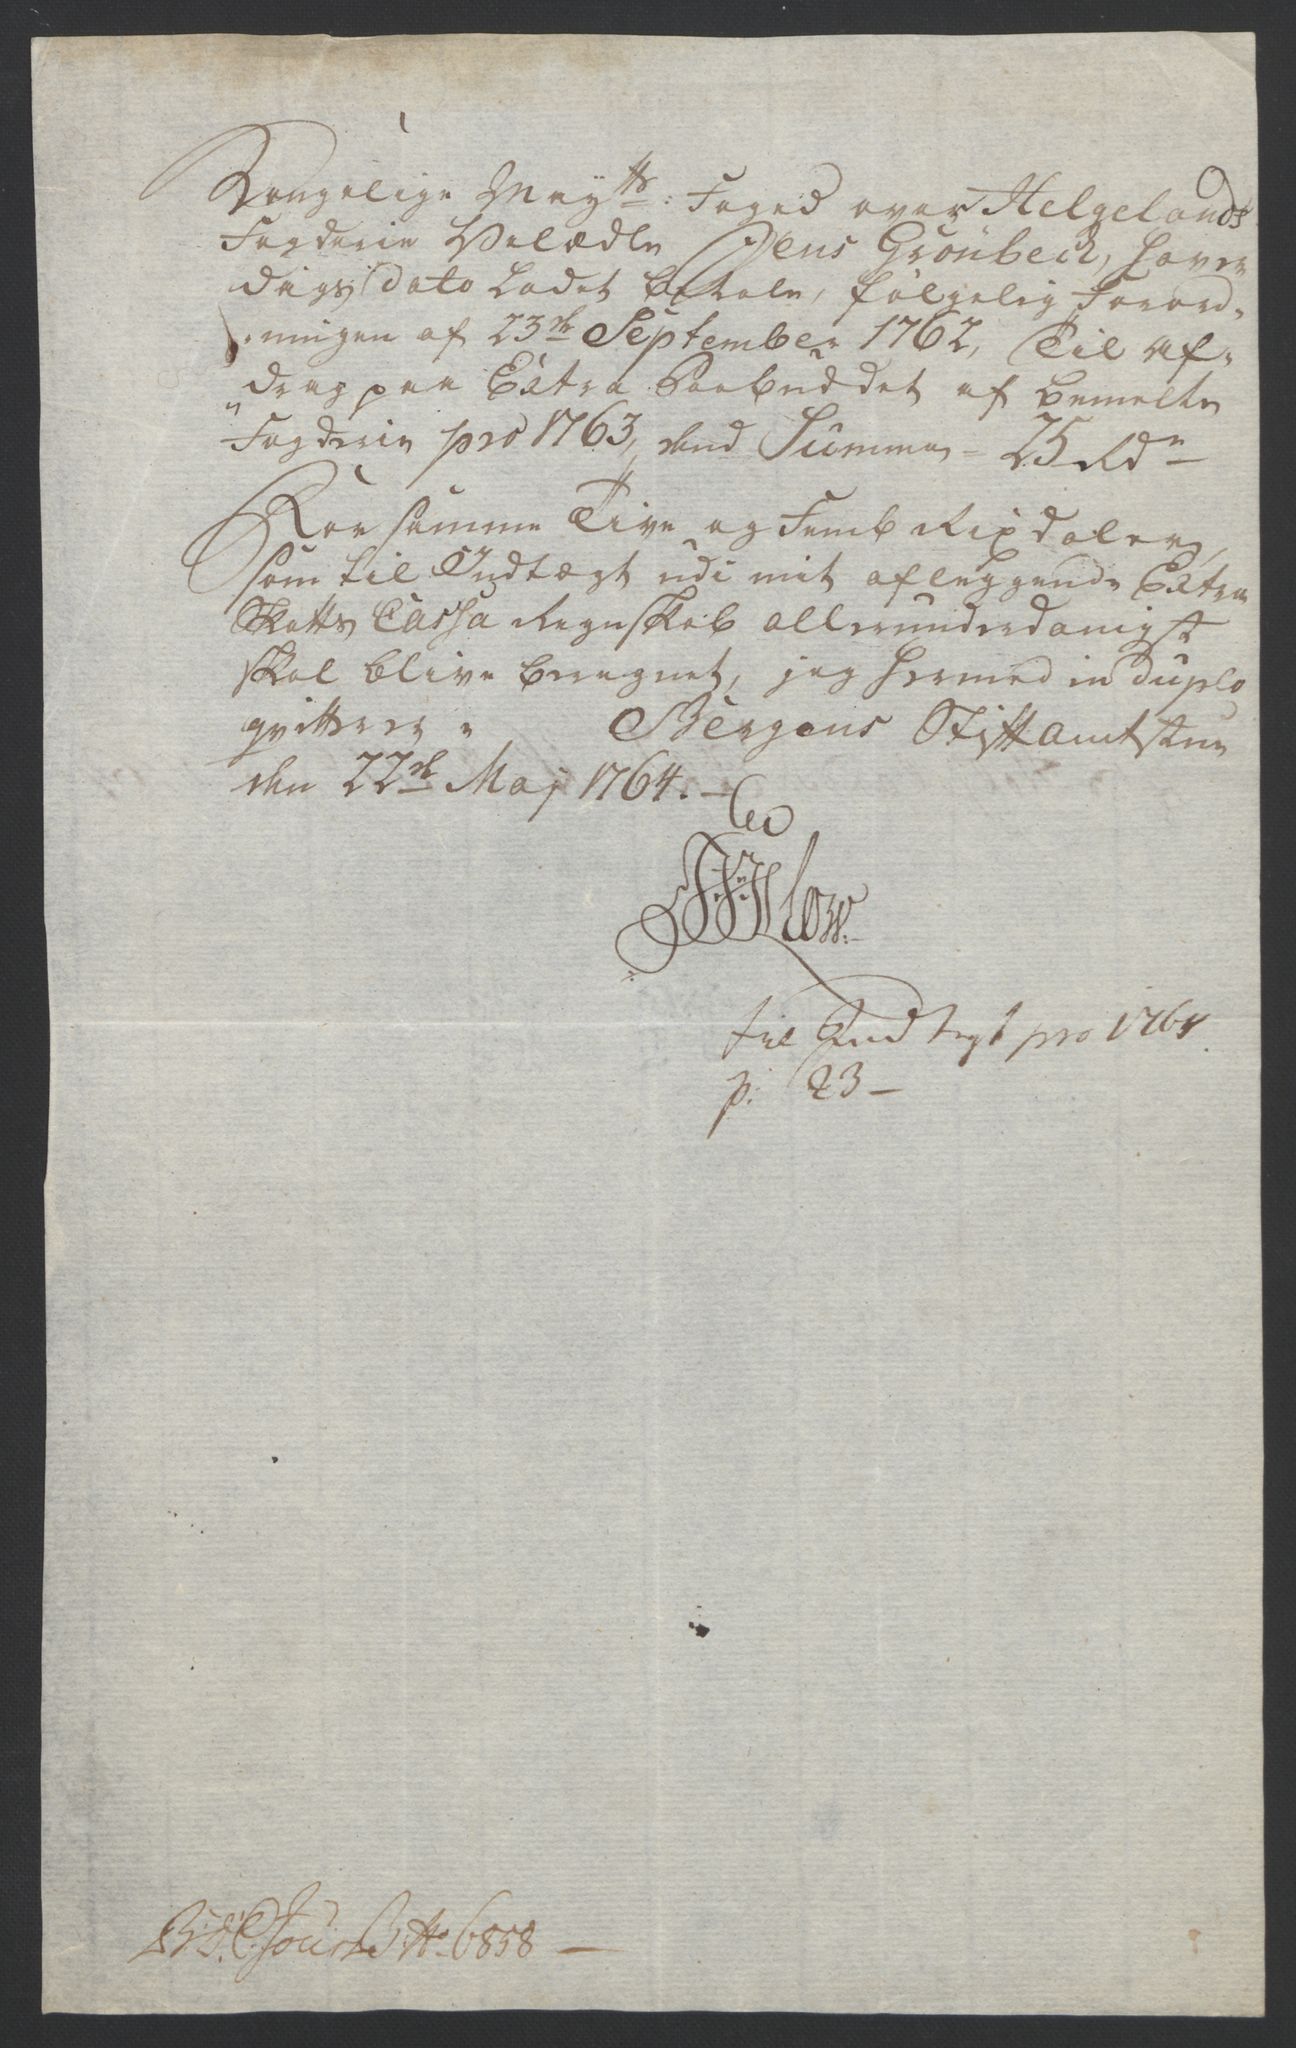 Kongelige Mayts: Foged over Helgelands
Fogderie Velædle Jens Grönbeck, haver
dags dato ladet betale, følgelig Forord-
-ningen af 23de September 1762, Til af-
drag paa Extra Paabuddet af bemelte
Fogderie pro 1763, dend Summa - 25 Rdr
For samme Tive og Femb Rixdaler,
som til Indtægt udi mit aflæggende Extra
Skatts Cassa Regnskab allerunderdanigst
skal blive beregnet, jeg hermed in duplo
qvitterer. Bergens Stiftamtstue
den 22de Maj 1764. -
til Indtegt pro 1764
p. 23 -
Jour No 6858 -